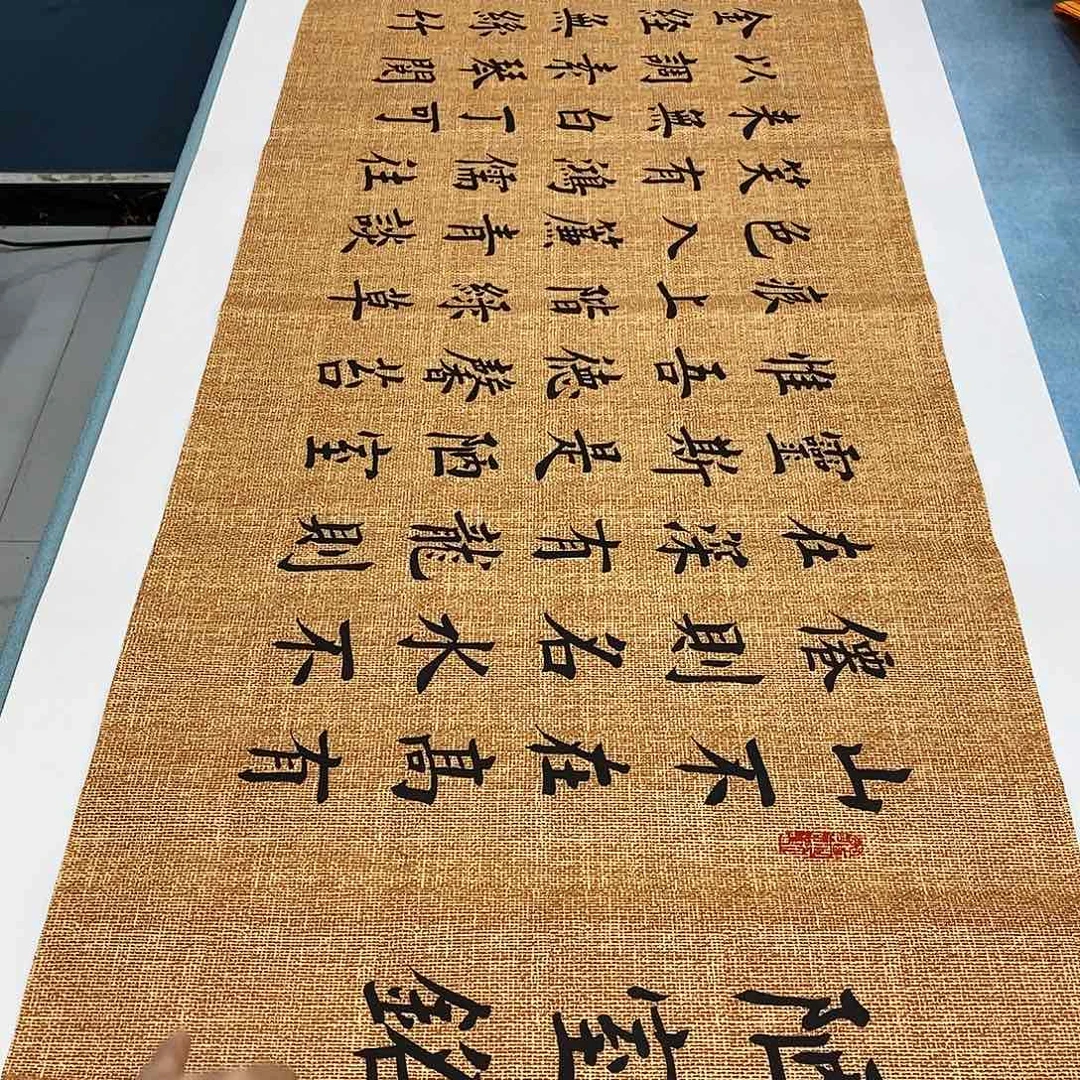 陋室銘
山不在髙有
僊則名水不
在深有龍則
靈斯是陋室
惟吾德馨苔
痕上階綠草
色入簾青談
笑有鴻儒往
来無白丁可
以調素琴閱
金経無絲竹